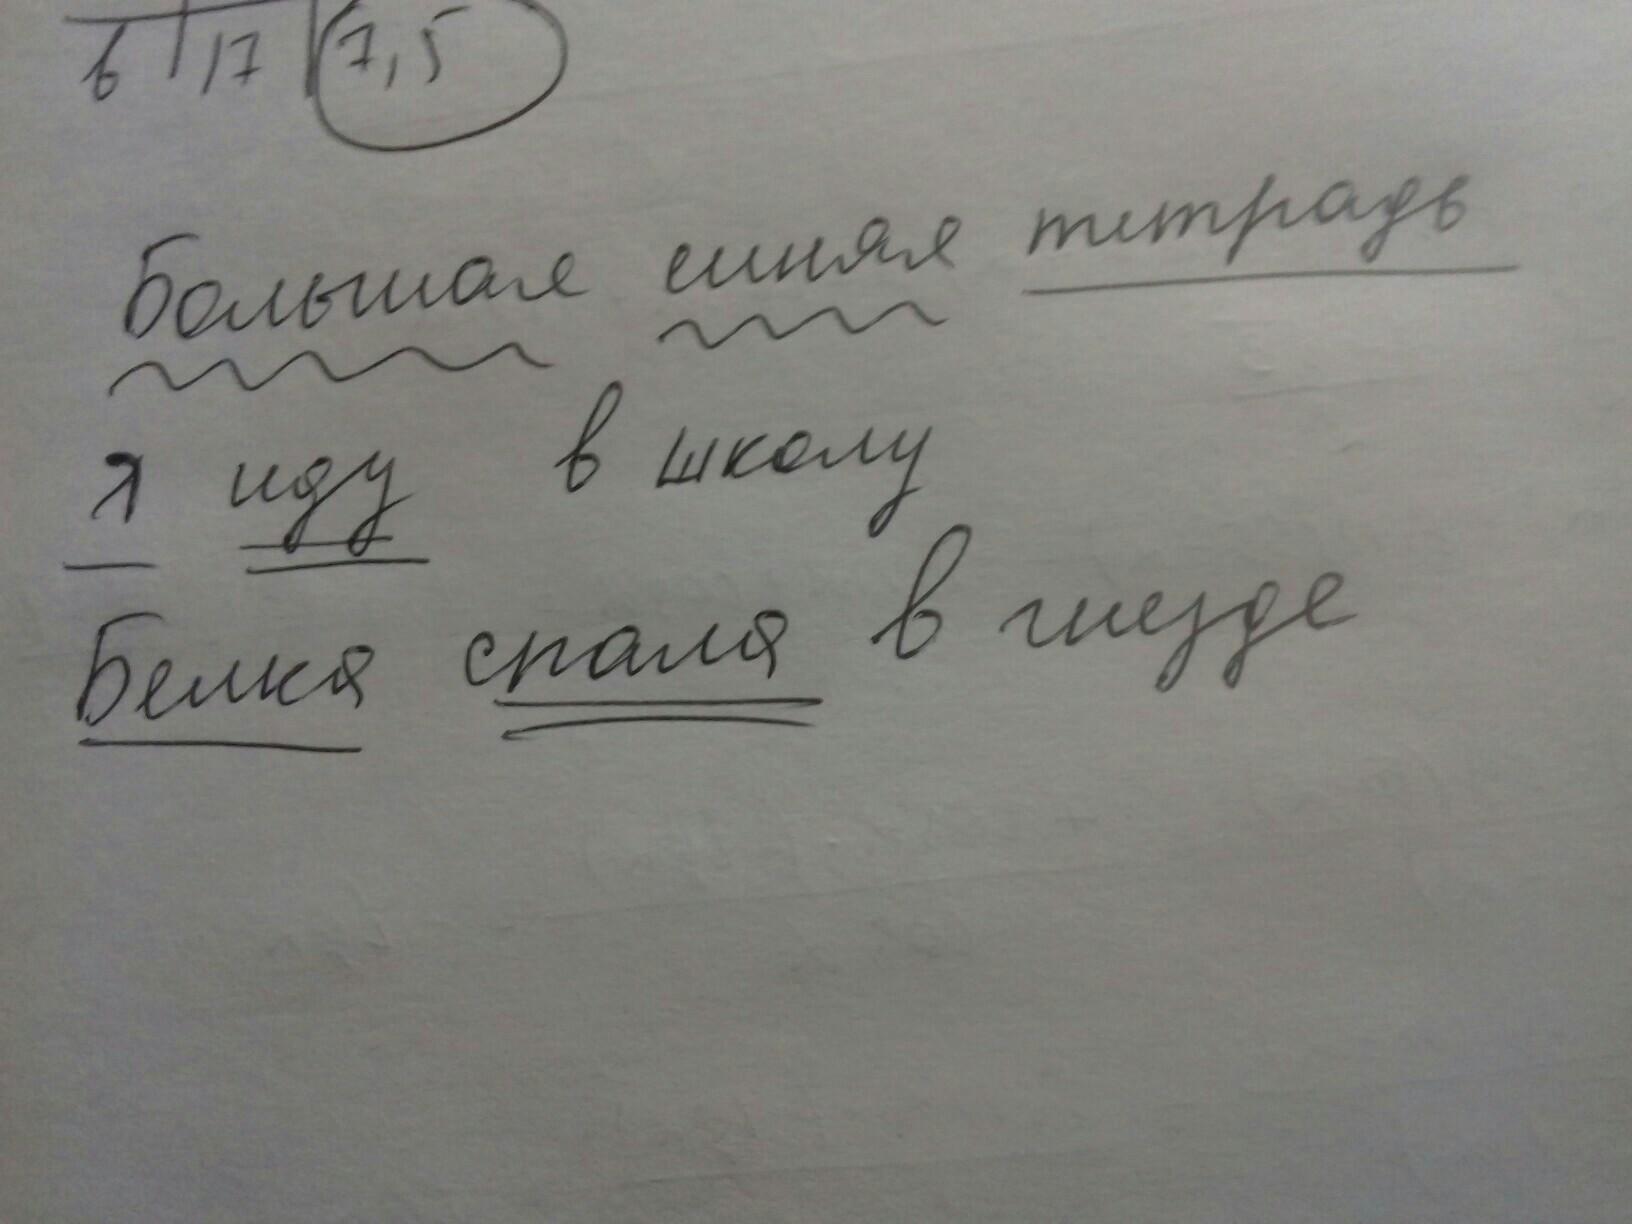 6 17 7,5
Большая синяя тетрадь
я иду в школу
Белка спала в гнезде